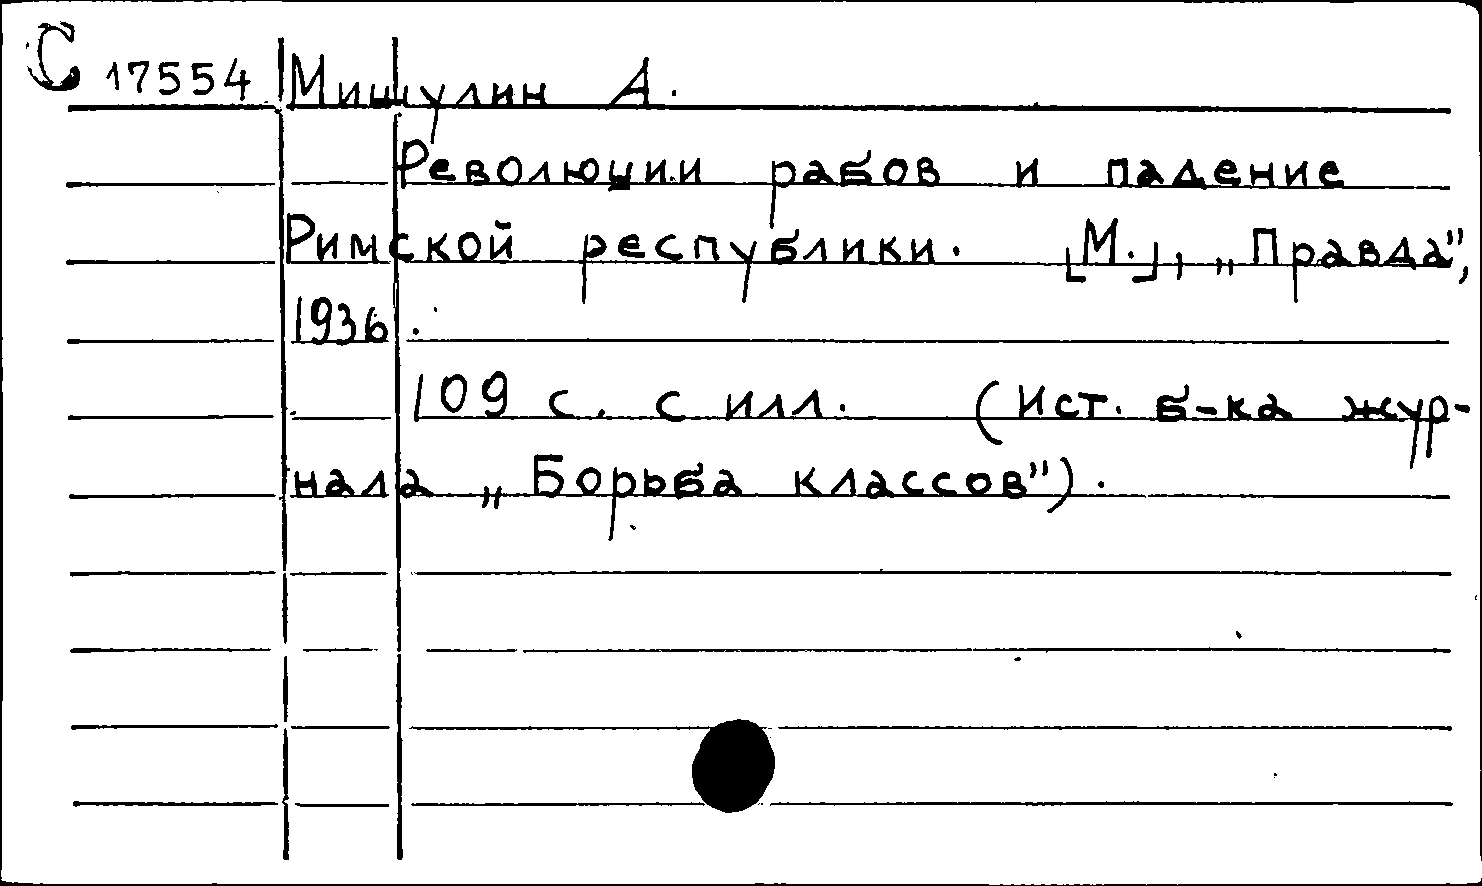 С 17554 Мишулин А.
Революции рабов и падение
Римской республики. [М.], „Правда",
1936.
109 с. с илл. (Ист. б-ка жур-
нала „Борьба классов").